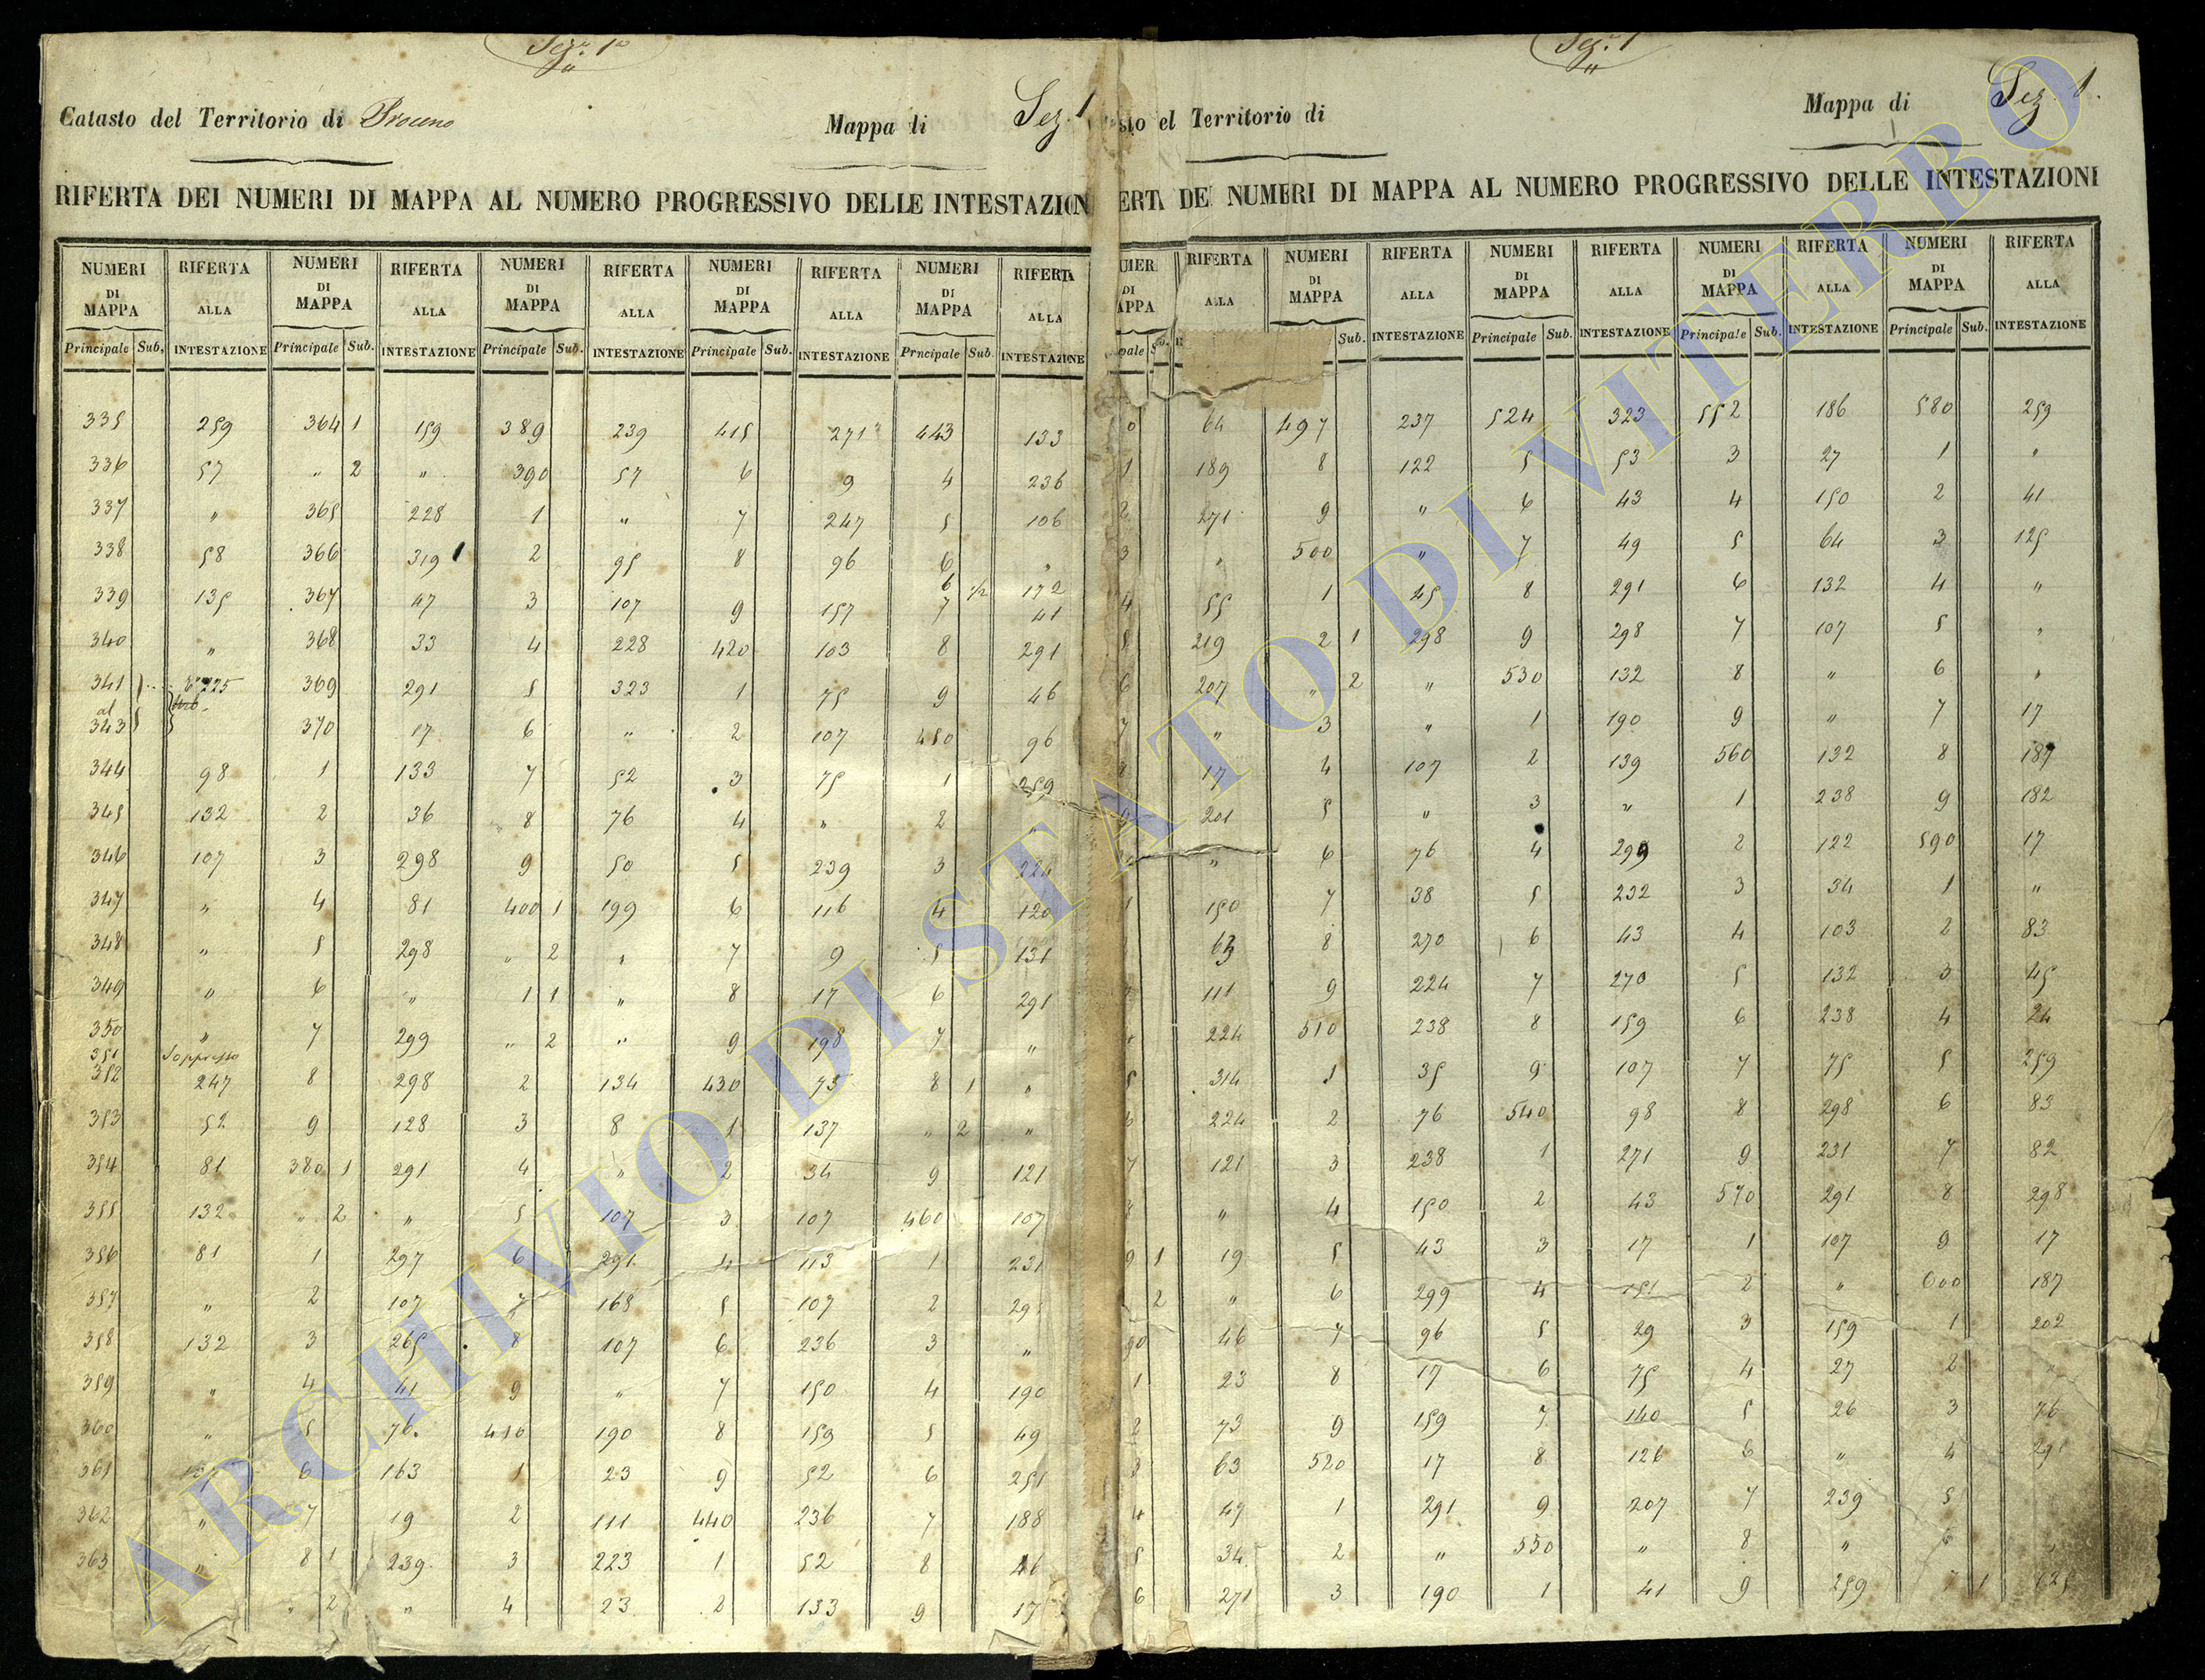 Sez.e 1a
Catasto del Territorio di Proceno
Mappa di Sez. 1
RIFERTA DEI NUMERI DI MAPPA AL NUMERO PROGRESSIVO DELLE INTESTAZION
NUMERI DI MAPPA RIFERTA ALLA NUMERI DI MAPPA RIFERTA ALLA NUMERI DI MAPPA RIFERTA ALLA NUMERI DI MAPPA RIFERTA ALLA NUMERI DI MAPPA RIFERTA ALLA
Principale Sub. INTESTAZIONE Principale Sub. INTESTAZIONE Principale Sub. INTESTAZIONE Principale Sub. INTESTAZIONE Principale Sub. INTESTAZIONE
335 259 364 1 159 389 239 415 271 443 133
336 57 " 2 " 390 57 6 9 4 236
337 " 365 228 1 " 7 247 5 106
338 58 366 319 2 95 8 96 6 "
6 1/2 172
339 135 367 47 3 107 9 157 7 41
340 " 368 33 4 228 420 103 8 291
341 225 369 291 5 323 1 75 9 46
al
343 370 17 6 " 2 107 450 96
344 98 1 133 7 52 3 75 1 259
345 132 2 36 8 76 4 " 2 "
346 107 3 298 9 50 5 239 3 224
347 " 4 81 400 1 199 6 116 4 120
348 " 5 298 " 2 " 7 9 5 131
349 " 6 " 1 1 " 8 17 6 291
350 " 7 299 " 2 " 9 198 7 "
351 Soppresso
352 247 8 298 2 134 430 73 8 1 "
353 52 9 128 3 8 1 137 " 2 "
354 81 380 1 291 4 " 2 34 9 121
355 132 " 2 " 5 107 3 107 460 107
356 81 1 297 6 291 4 113 1 231
357 " 2 107 7 165 5 107 2 29
358 132 3 265 8 107 6 236 3 "
359 " 4 41 9 " 7 150 4 190
360 " 5 76 410 190 8 159 5 49
361 6 163 1 23 9 52 6 251
362 " 7 19 2 111 440 236 7 188
363 " 8 1 239 3 223 1 52 8 46
" 2 " 4 23 2 133 9 17
Sez.e 1
sto el Territorio di
Mappa di Sez. 1.
ERTA DEI NUMERI DI MAPPA AL NUMERO PROGRESSIVO DELLE INTESTAZIONI
UMER DI APPA RIFERTA ALLA NUMERI DI MAPPA RIFERTA ALLA NUMERI DI MAPPA RIFERTA ALLA NUMERI DI MAPPA RIFERTA ALLA NUMERI DI MAPPA RIFERTA ALLA
pale Sub. INTESTAZIONE Principale Sub. INTESTAZIONE Principale Sub. INTESTAZIONE Principale Sub. INTESTAZIONE
0 64 497 237 524 323 552 186 580 259
1 189 8 122 5 53 3 27 1 "
2 271 9 " 6 43 4 150 2 41
3 " 500 " 7 49 5 64 3 125
4 55 1 45 8 291 6 132 4 "
5 219 2 1 298 9 298 7 107 5 "
6 207 " 2 " 530 132 8 " 6 "
7 " 3 " 1 190 9 " 7 17
8 17 4 107 2 139 560 132 8 187
9 201 5 " 3 " 1 238 9 182
" 6 76 4 299 2 122 590 17
1 150 7 38 5 232 3 34 1 "
63 8 270 6 43 4 103 2 83
111 9 224 7 270 5 132 3 45
224 510 238 8 159 6 238 4 24
5 314 1 35 9 107 7 75 5 259
6 224 2 76 540 98 8 298 6 83
7 121 3 238 1 271 9 231 7 82
8 " 4 150 2 43 570 291 8 298
9 1 19 5 43 3 17 1 107 9 17
2 " 6 299 4 151 2 " 600 187
90 46 7 96 5 29 3 159 1 202
1 23 8 17 6 75 4 27 2 "
2 73 9 159 7 140 5 26 3 76
3 63 520 17 8 126 6 " 4 291
4 47 1 291 9 207 7 239 5
5 34 2 " 550 " 8 " 6 "
6 271 3 190 1 41 9 259 7 1 125
ARCHIVIO DI STATO DI VITERBO